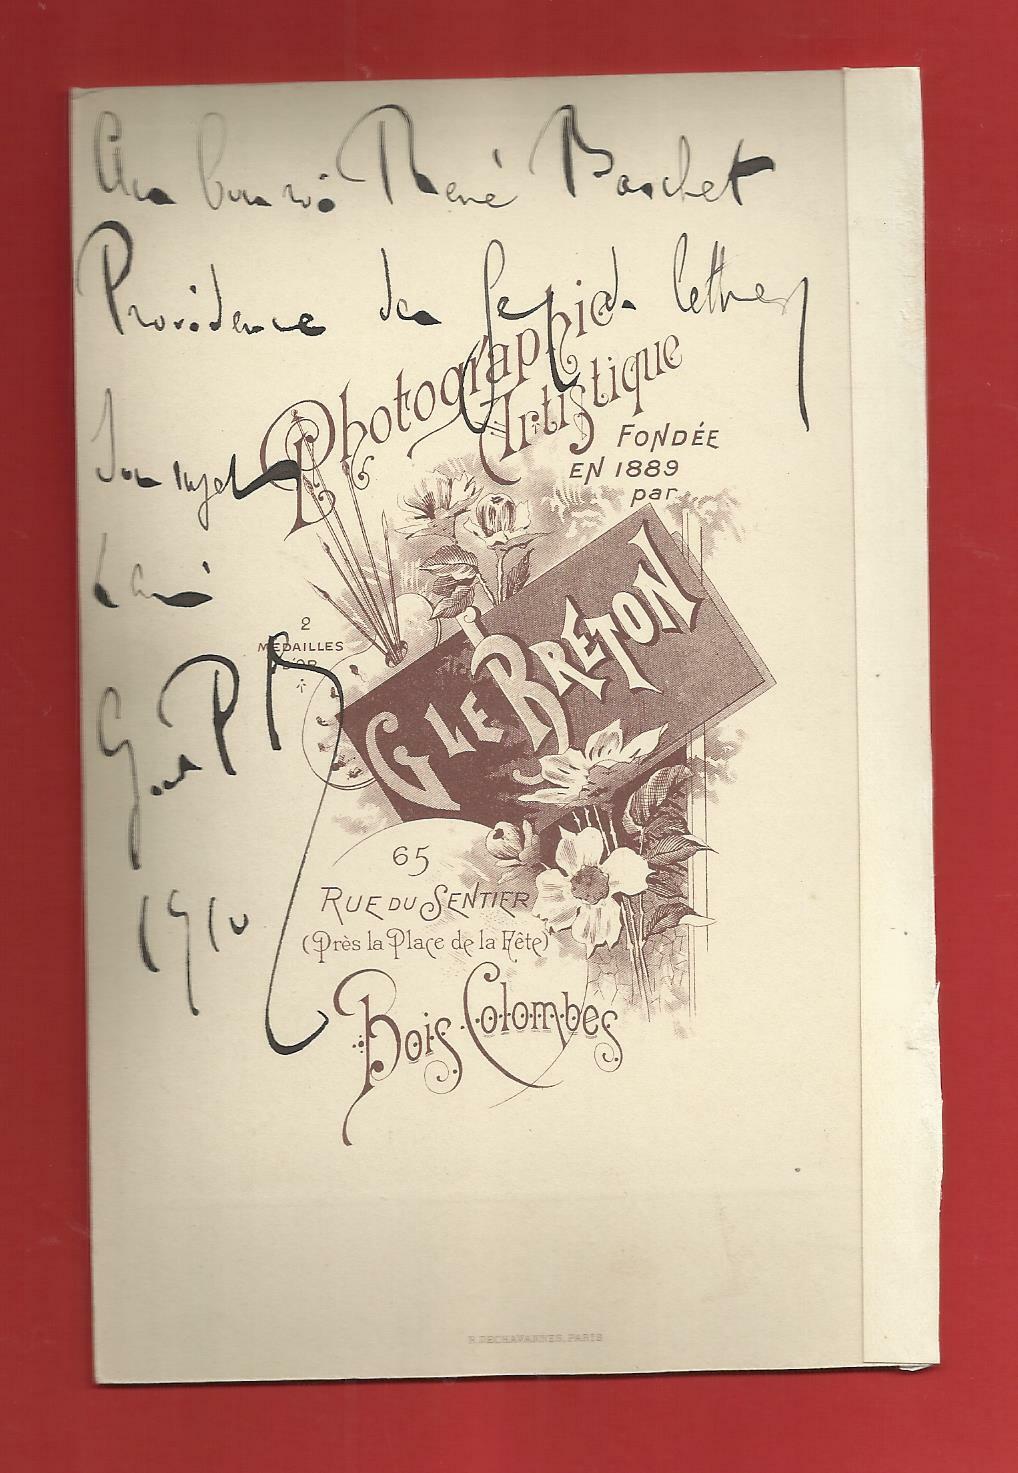 Au bon roi René Baschet
Providence des Gens de lettres
Son sujet
1910
Photographie
Artistique
FONDÉE
EN 1889
par
2
MÉDAILLES
D'OR
G LE BRETON
65
RUE DU SENTIER
(Près la Place de la Fête)
Bois Colombes
R. DECHAVANNES, PARIS